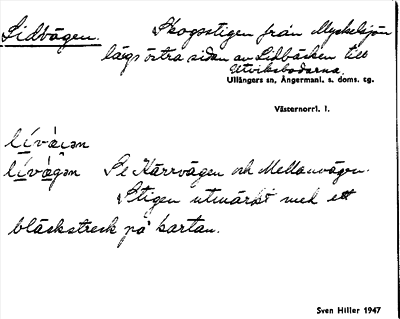 Lidvägen. Skogsstigen från Myckelsjön
längs östra sidan av Lidbäcken till
Utviksbodarna.
Ullångers sn, Ångermanl. s. doms. tg.
Västernorrl. l.
lívàɡən
Se Kärrvägen och Mellanvägen.
Stigen utmärkt med ett
bläckstreck på kartan.
Sven Hiller 1947